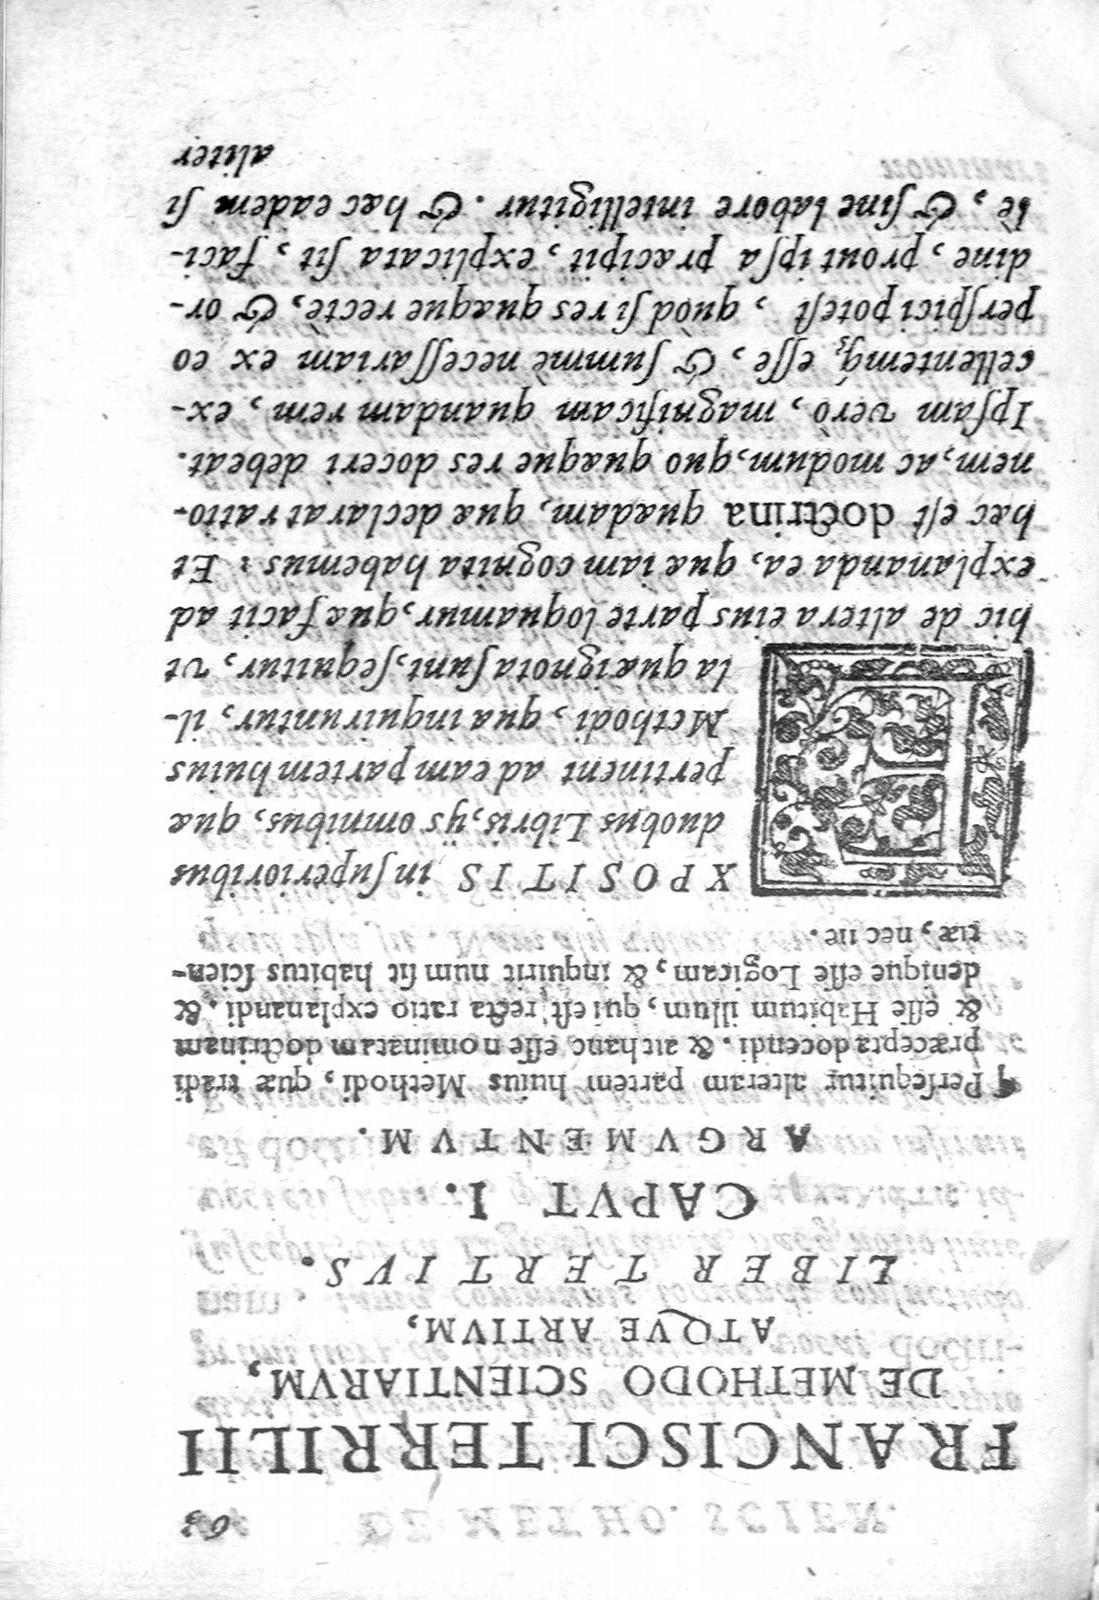 63
FRANCISCI TERRILII
DE METHODO SCIENTIARVM,
ATQVE ARTIVM,
LIBER TERTIVS.
CAPVT I.
ARGVMENTVM.
¶ Perſequitur alteram partem huius Methodi, quæ tradi
præcepta docendi. & aithanc eſſe nominatam doctrinam
& eſſe Habitum illum, qui eſt recta ratio explanandi. &
denique eſſe Logicam, & inquirit num ſit habitus ſcien-
tiæ, nec ne.
EXPOSITIS in ſuperioribus
duobus Libris, ijs omnibus, quæ
pertinent ad eam partem huius
Methodi, qua inquiruntur, il-
la quæ ignota ſunt, ſequitur, vt
hic de altera eius parte loquamur, quæ facit ad
explananda ea, quæ iam cognita habemus: Et
hæc eſt doctrina quædam, quæ declarat ratio-
nem, ac modum, quo quæque res doceri debeat.
Ipſam verò, magnificam quandam rem, ex-
cellentemq́; eſſe, & ſummè neceſſariam ex eo
perſpici poteſt, quòd ſi res quæque rectè, & or-
dine, prout ipſa præcipit, explicata ſit, faci-
lè, & ſine labore intelligitur. & hæc eadem ſi
aliter